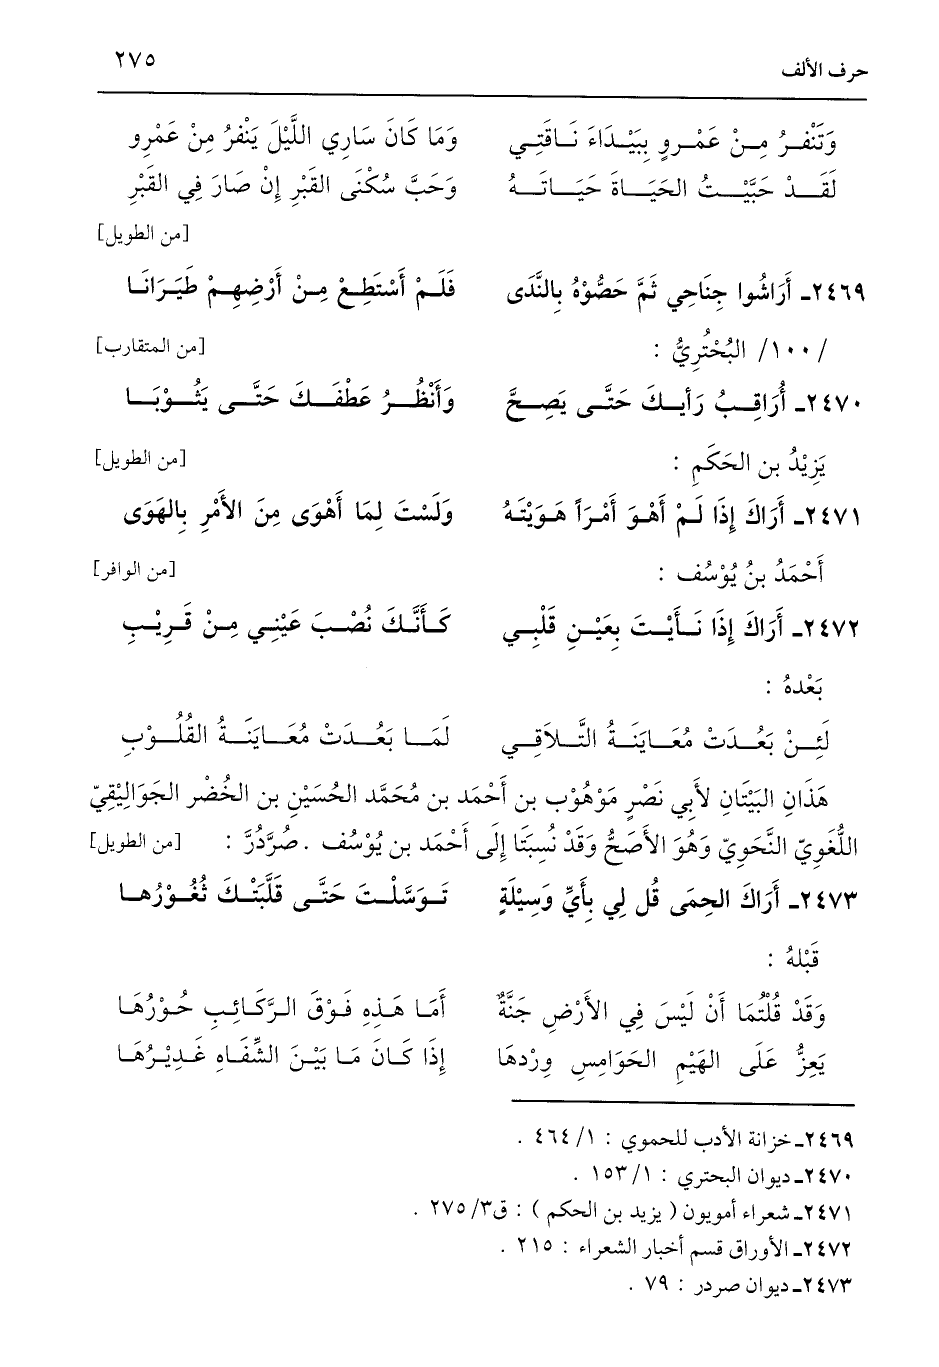 حرف الألف ٢٧٥
وَتَنْفِرُ مِنْ عَمْروٍ بِبَيْدَاءَ نَاقَتِي وَمَا كَانَ سَارِي اللَّيْلَ يَنْفرُ مِنْ عَمْرِو
لَقَدْ حَبَّبَتْ الحَيَاةَ حَيَاتهُ وَحَبَّ سُكْنَى القَبْرِ إِنْ صَارَ فِي القَبْرِ
[من الطويل]
٢٤٦٩ـ أَرَاشُوا جِنَاحِي ثمَّ حَصُّوْهُ بِالنَّدَى فَلَمْ أَسْتَطِعْ مِنْ أَرْضِهِمْ طَيَرَانَا
/١٠٠/ البُحْتُرِيُّ : [من المتقارب]
٢٤٧٠ـ أُرَاقِبُ رَأيكَ حَتَّى يَصِحَّ وَأَنْظُرُ عَطْفَكَ حَتَّى يَثُوْبَا
يَزِيْدُ بن الحَكَمِ : [من الطويل]
٢٤٧١ـ أَرَاكَ إِذَا لَمْ أَهْوَ أَمْرَاً هَوَيْتَهُ وَلَسْتَ لِمَا أَهْوَى مِنَ الأَمْرِ بِالهَوَى
أَحْمَدُ بنُ يُوْسُف : [من الوافر]
٢٤٧٢ـ أَرَاكَ إِذَا نَأَيْتَ بِعَيْنِ قَلْبِي كَأَنَّكَ نُصْبَ عَيْنِي مِنْ قَرِيْبِ
بَعْدهُ :
لَئِنْ بَعُدَتْ مُعَايَنَةُ التَّلاَقِي لَمَا بَعُدَتْ مُعَايَنَةُ القُلُوْبِ
هَذَانِ البَيْتَانِ لأَبِي نَصْرٍ مَوْهُوْب بن أَحْمَد بن مُحَمَّد الحُسَيْنِ بن الخُضْر الجَوَالِيْقِيّ
اللُّغَوِيّ النَّحَوِيّ وَهُوَ الأَصَحُّ وَقَدْ نُسِبَتَا إِلَى أَحْمَد بن يُوْسُف . صُرَّدُرَّ : [من الطويل]
٢٤٧٣ـ أَرَاكَ الحِمَى قُل لِي بِأَيِّ وَسِيْلَةٍ تَوَسَّلْتَ حَتَّى قَلَّبَتْكَ ثُغُوْرُهَا
قَبْلهُ :
وَقَدْ قُلْتُمَا أَنْ لَيْسَ فِي الأَرْضِ جَنَّةٌ أَمَا هَذِهِ فَوْقَ الرَّكَائِبِ حُوْرُهَا
يَعِزُّ عَلَى الهَيْمِ الحَوَامِسِ وِرْدهَا إِذَا كَانَ مَا بَيْنَ الشِّفَاهِ غَدِيْرُهَا
٢٤٦٩ـ خزانة الأدب للحموي : ١/ ٤٦٤ .
٢٤٧٠ـ ديوان البحتري : ١/ ١٥٣ .
٢٤٧١ـ شعراء أمويون ( يزيد بن الحكم ) : ق٣/ ٢٧٥ .
٢٤٧٢ـ الأوراق قسم أخبار الشعراء : ٢١٥ .
٢٤٧٣ـ ديوان صردر : ٧٩ .